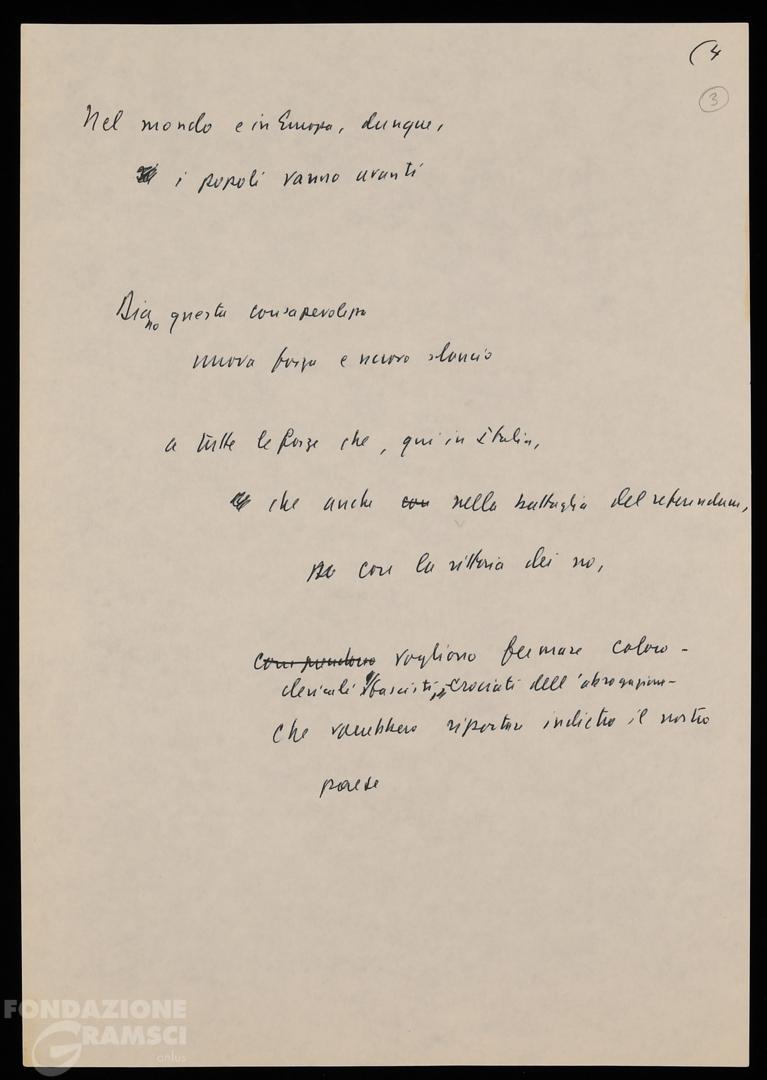 (4
3
Nel mondo e in Europa, dunque,
i popoli vanno avanti
Diano questa consapevolezza
nuova forza e nuovo slancio
a tutte le forze che, qui in Italia,
che anche con nella battaglia del referendum,
con la vittoria dei no,
vogliono fermare coloro -
clericali fascisti, crociati dell'abrogazione -
che vorrebbero riportare indietro il nostro
paese
FONDAZIONE
GRAMSCI
onlus